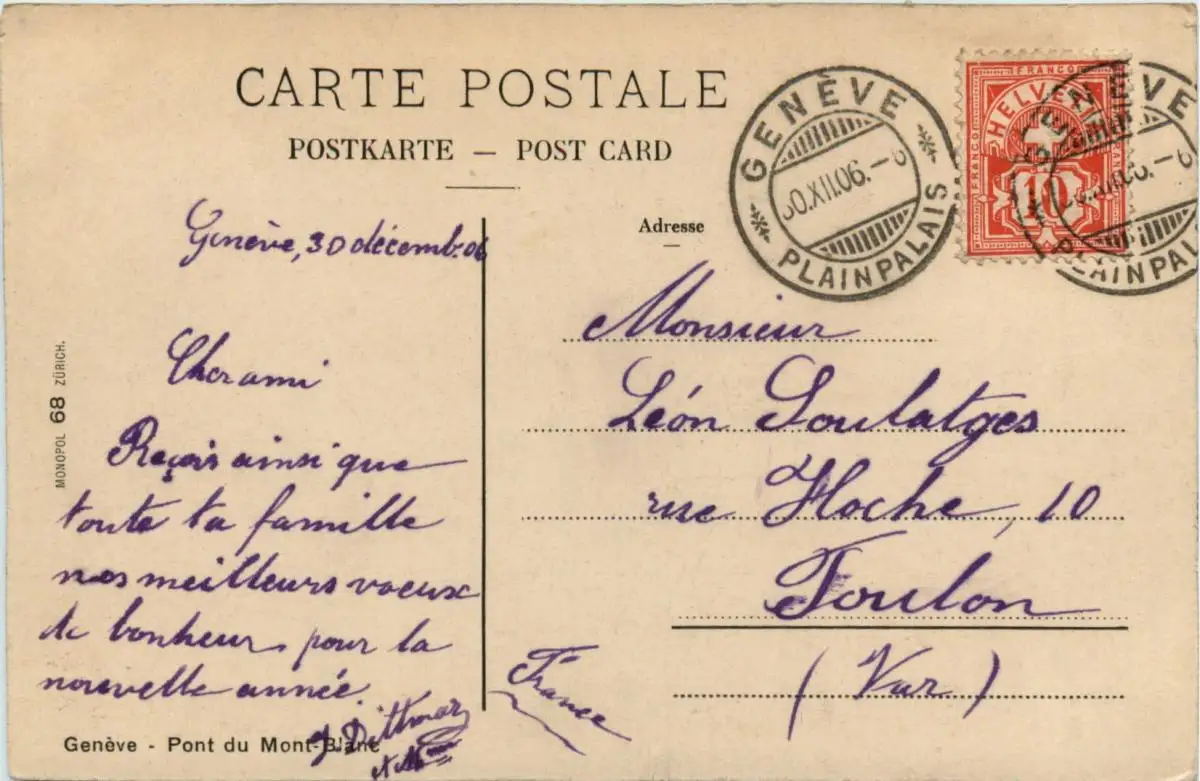 CARTE POSTALE
POSTKARTE — POST CARD
GENÈVE
30.XII.06.-
PLAINPALAIS
FRANCO
HELVETIA
10
GENÈVE
PLAINPAL
MONOPOL 68 ZÜRICH.
Genève, 30 décemb. 06
Cher ami
Reçois ainsi que
toute ta famille
nos meilleurs voeux
de bonheur pour la
nouvelle année
J. Dittmar
et Mme
Genève - Pont du Mont-Blanc
Adresse
Monsieur
Léon Soulatges
rue Hoche, 10
Toulon
(Var)
France